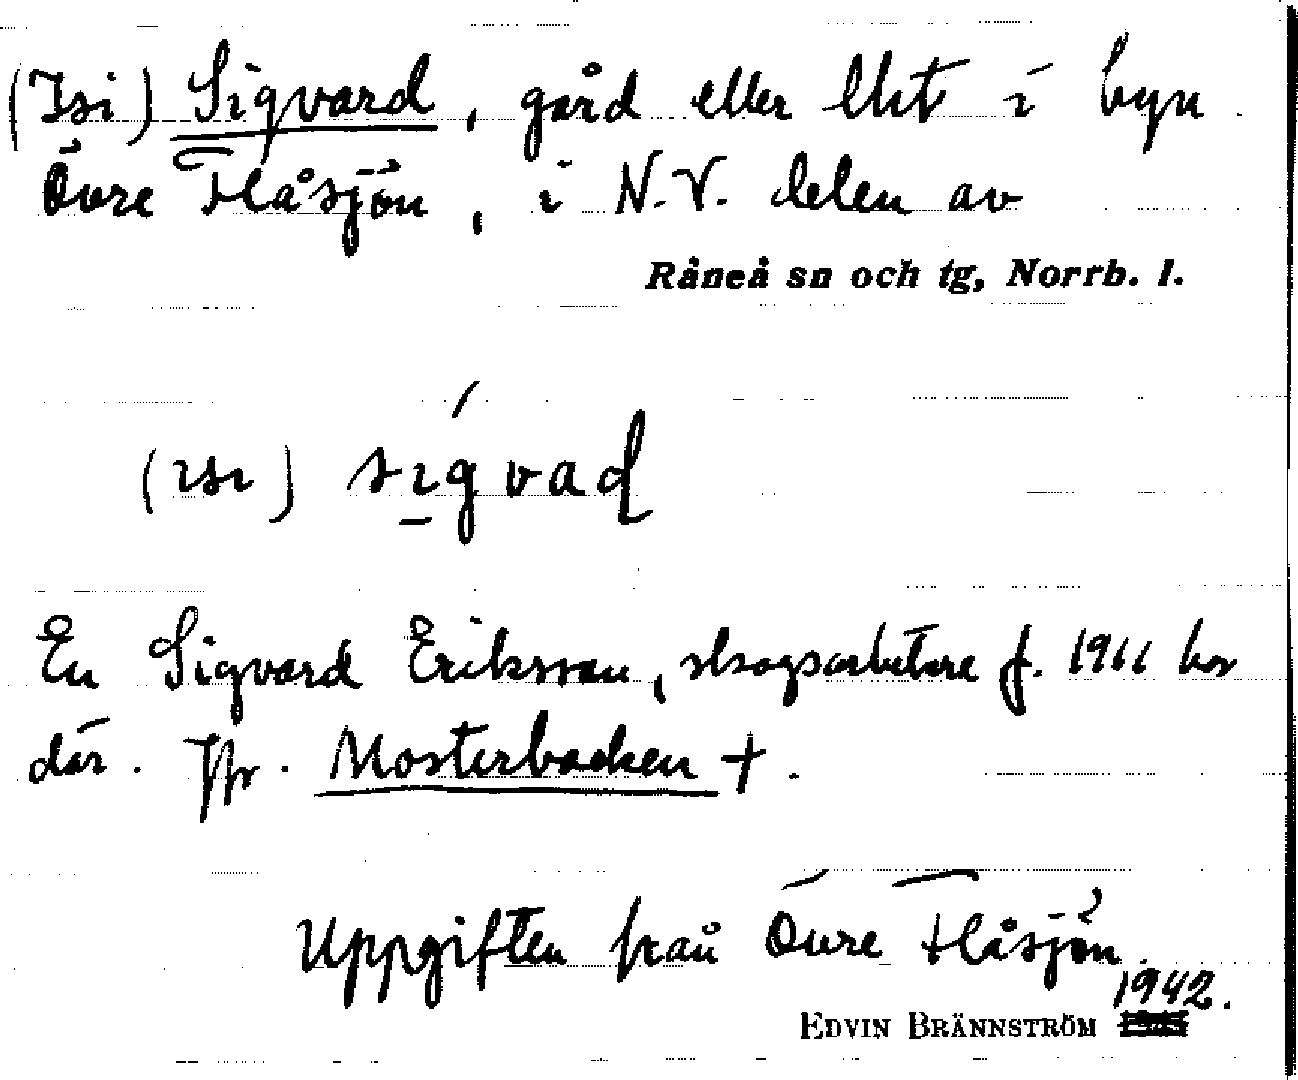 (Isi) Sigvard, gård eller lht i byn
Övre Flåsjön, i N.V. delen av
Råneå sn och tg, Norrb. l.
(ısı) sıgvad
En Sigvard Eriksson, skogsarbetare f. 1911 bor
där. Jfr. Mosterbacken +.
Uppgiften från Övre Flåsjön.
1942.
EDVIN BRÄNNSTRÖM